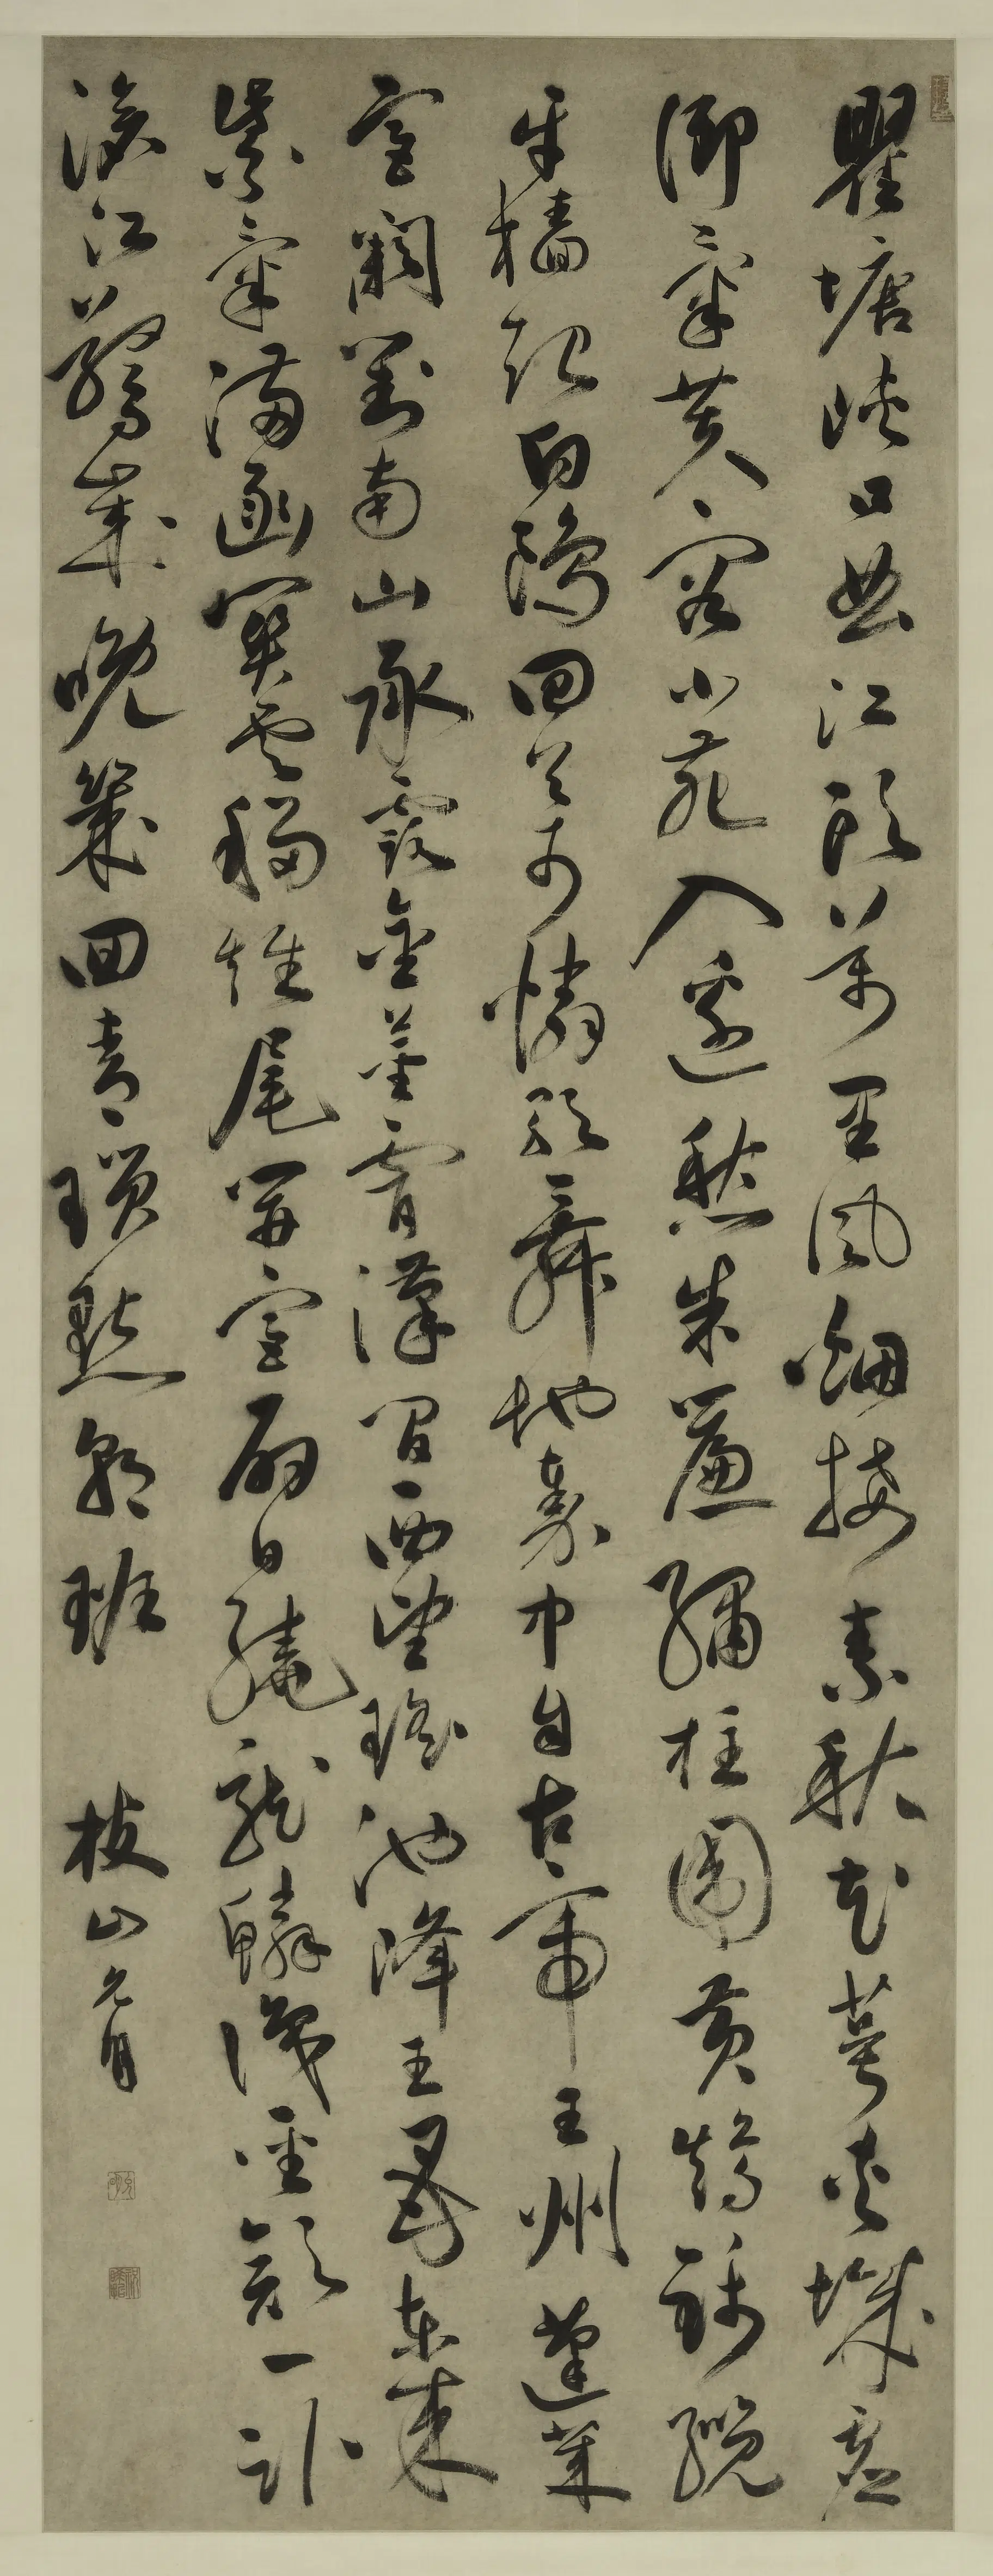 瞿塘峽口曲江頭萬里風烟接素秋花萼夾城
御氣芙容小苑入邊愁朱簾繡柱圍黄鵠錦纜
牙檣起白鷗回首可憐歌舞地秦中自古帝王州蓬萊
宫闕對南山承露金莖霄漢間西望瑶池降王母東來
紫氣滿函關雲移雉尾開宫扇日繞龍鱗識聖顔一卧
滄江驚歲晚幾回青瑣點朝班 枝山允明